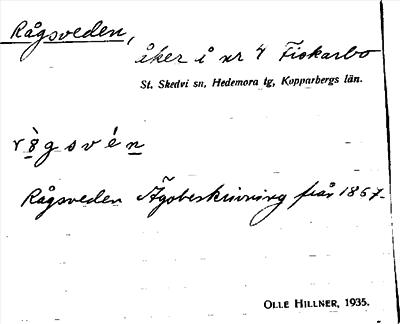 Rågsveden,
åker å nr 4 Fiskarbo
St. Skedvi sn, Hedemora tg, Kopparbergs län.
r ò̱ g s v é n̲
Rågsveden Ägobeskrivning från 1867.
OLLE HILLNER, 1935.